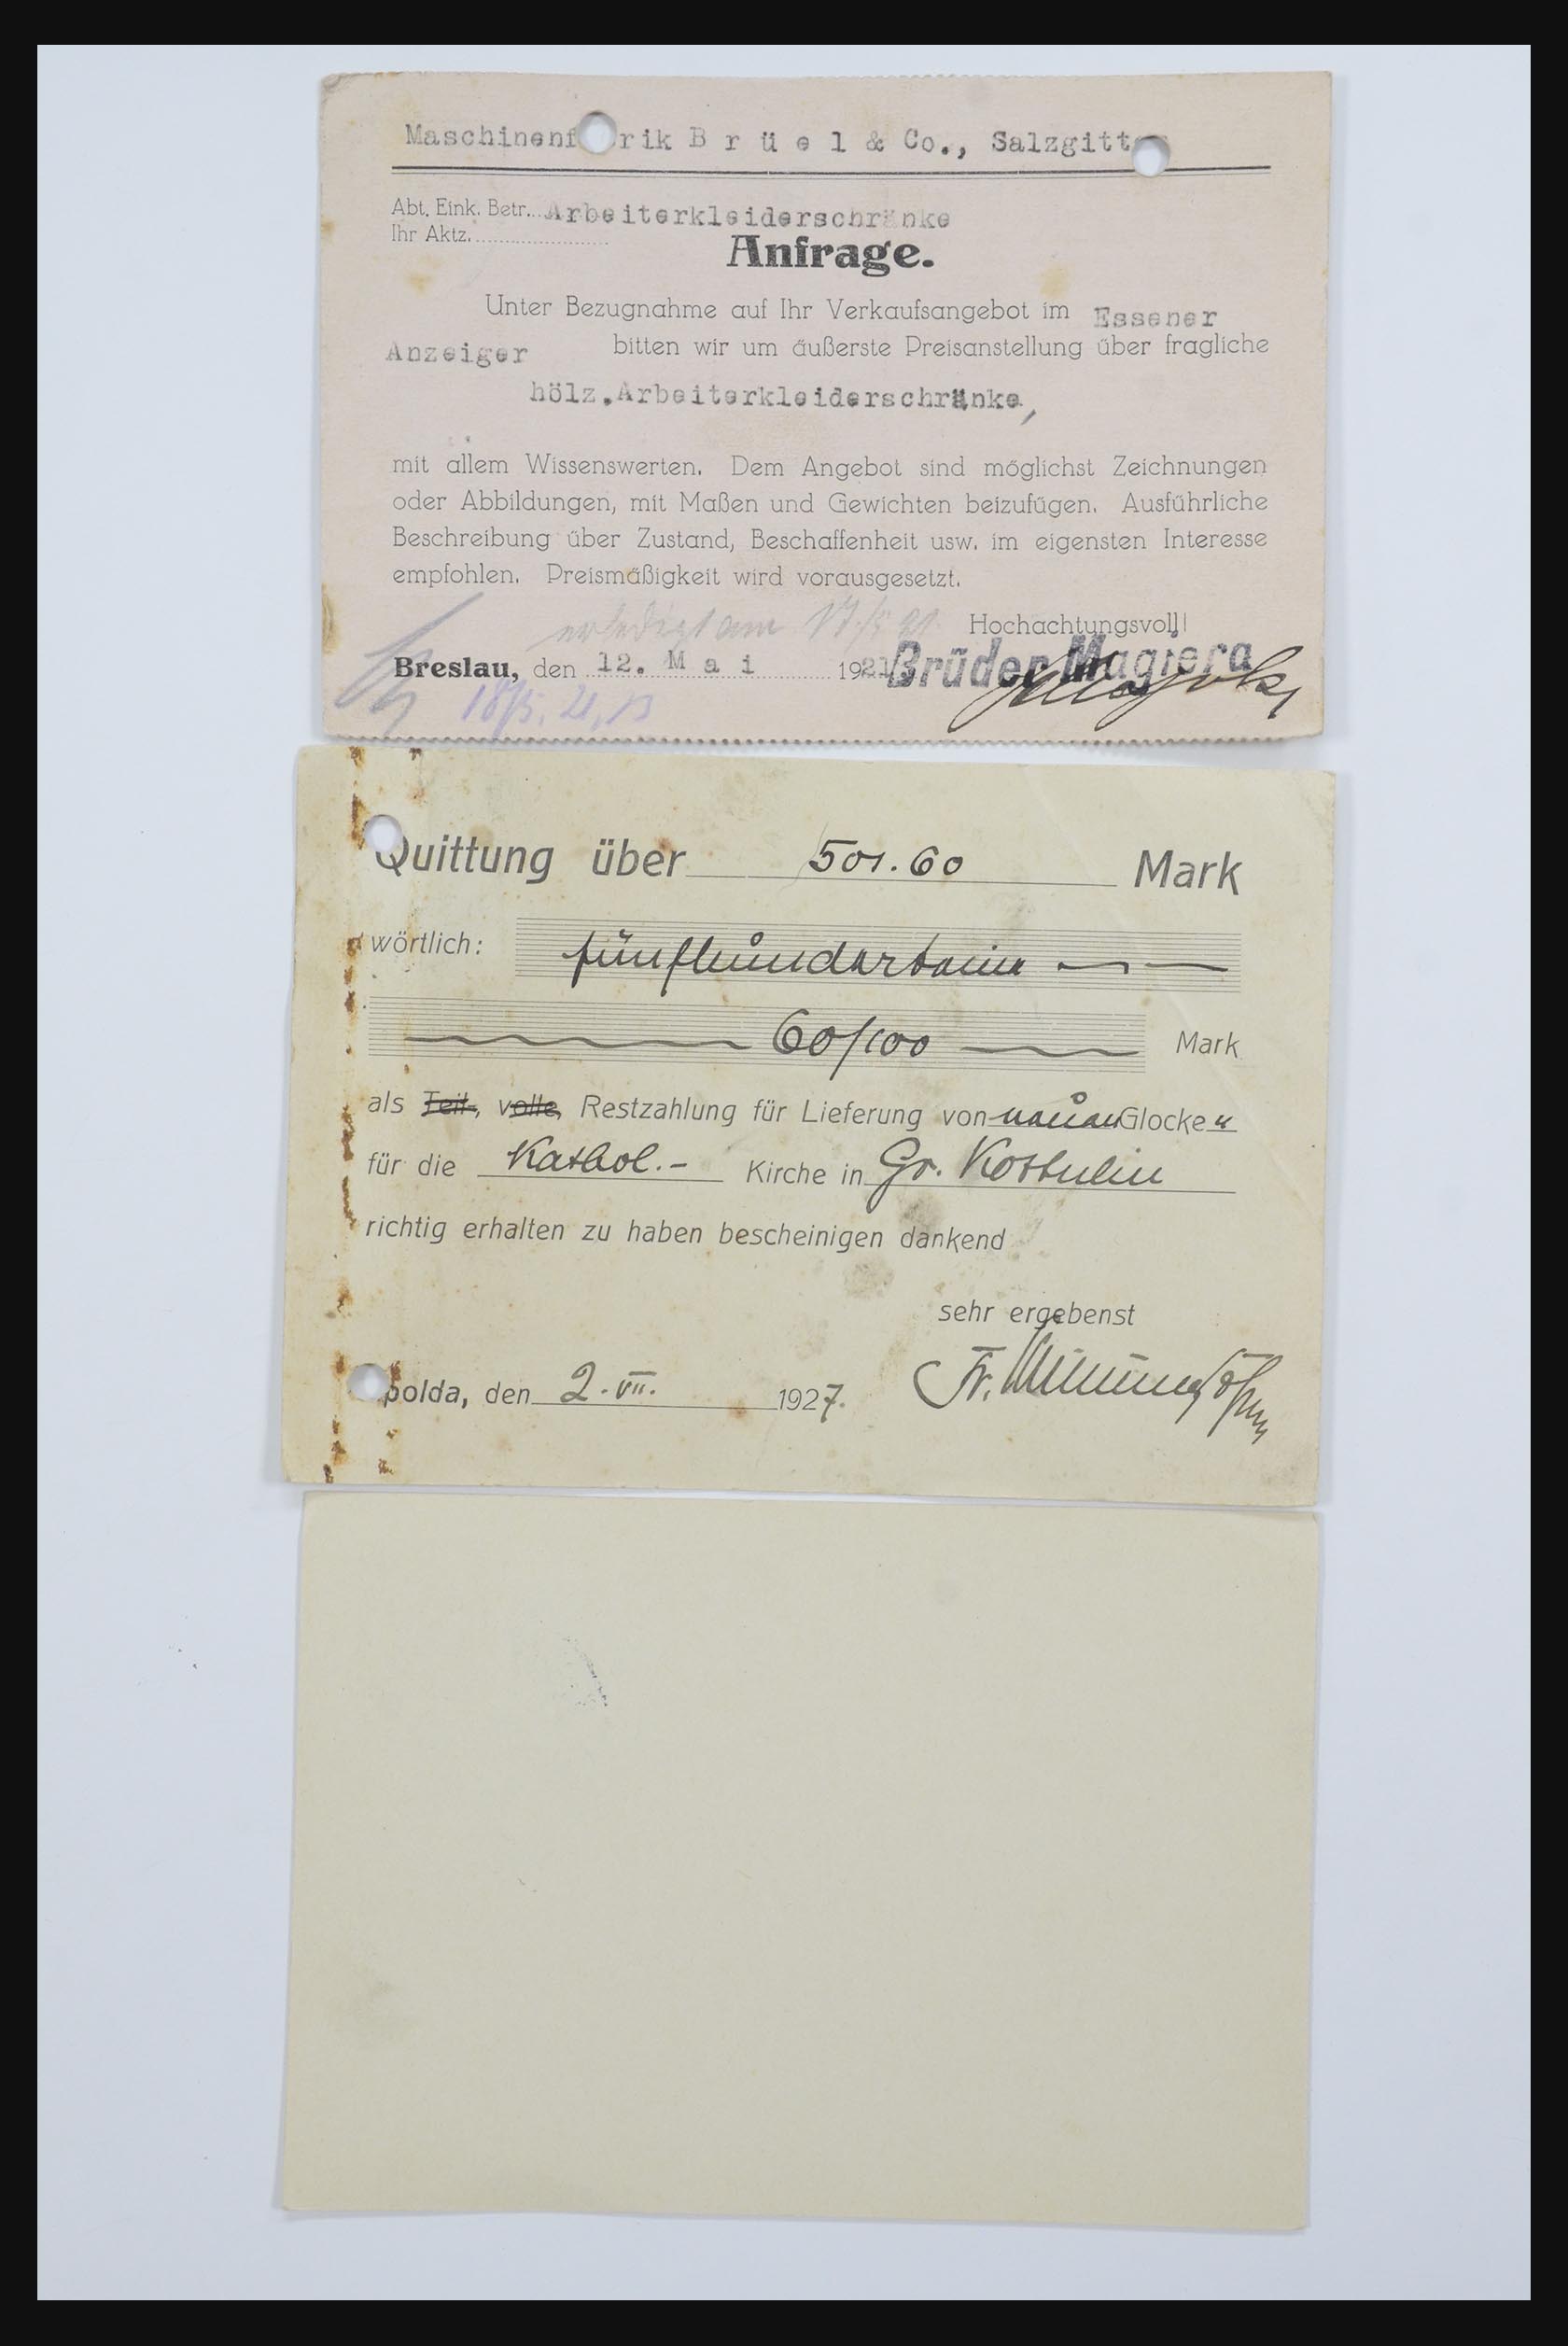 Maschinenf rik B r ü e l & Co., Salzgitt
Abt. Eink. Betr. Arbeiterkleiderschränke
Ihr Aktz.
Anfrage.
Unter Bezugnahme auf Ihr Verkaufsangebot im Essener
Anzeiger bitten wir um äußerste Preisanstellung über fragliche
hölz.Arbeiterkleiderschränke,
mit allem Wissenswerten. Dem Angebot sind möglichst Zeichnungen
oder Abbildungen, mit Maßen und Gewichten beizufügen. Ausführliche
Beschreibung über Zustand, Beschaffenheit usw. im eigensten Interesse
empfohlen. Preismäßigkeit wird vorausgesetzt.
erledigt am Hochachtungsvoll!
Breslau, den 12. M a i 1921. Brüder Magiera
18/5. 21, 13
Quittung über 501.60 Mark
wörtlich: fünfhunderteins
60/100 Mark
als Teil-, volle, Restzahlung für Lieferung von neuen Glocken
für die Kathol.- Kirche in Gr. Kottulin
richtig erhalten zu haben bescheinigen dankend
sehr ergebenst
polda, den 2. VII. 1927. Fr.